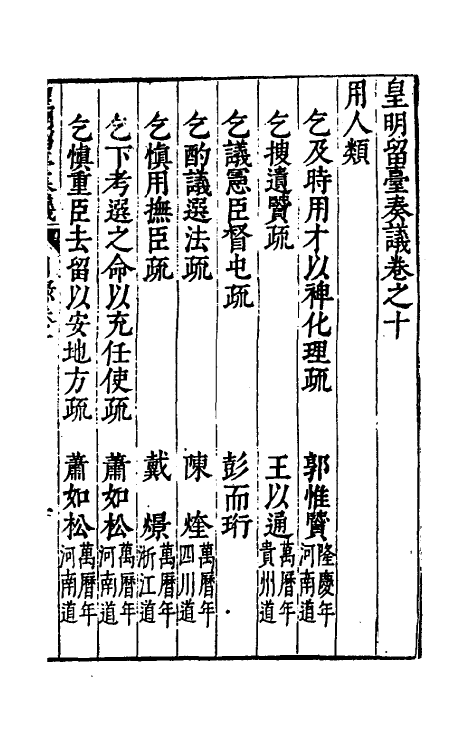 皇明留臺奏議卷之十
用人類
乞及時用才以裨化理疏 郭惟賢 隆慶年河南道
乞搜遺賢疏 王以通 萬曆年貴州道
乞議憲臣督屯疏 彭而珩
乞酌議選法疏 陳煃 萬曆年四川道
乞慎用撫臣疏 戴熼 萬曆年浙江道
乞下考選之命以充任使疏 蕭如松 萬曆年河南道
乞慎重臣去留以安地方疏 蕭如松 萬曆年河南道